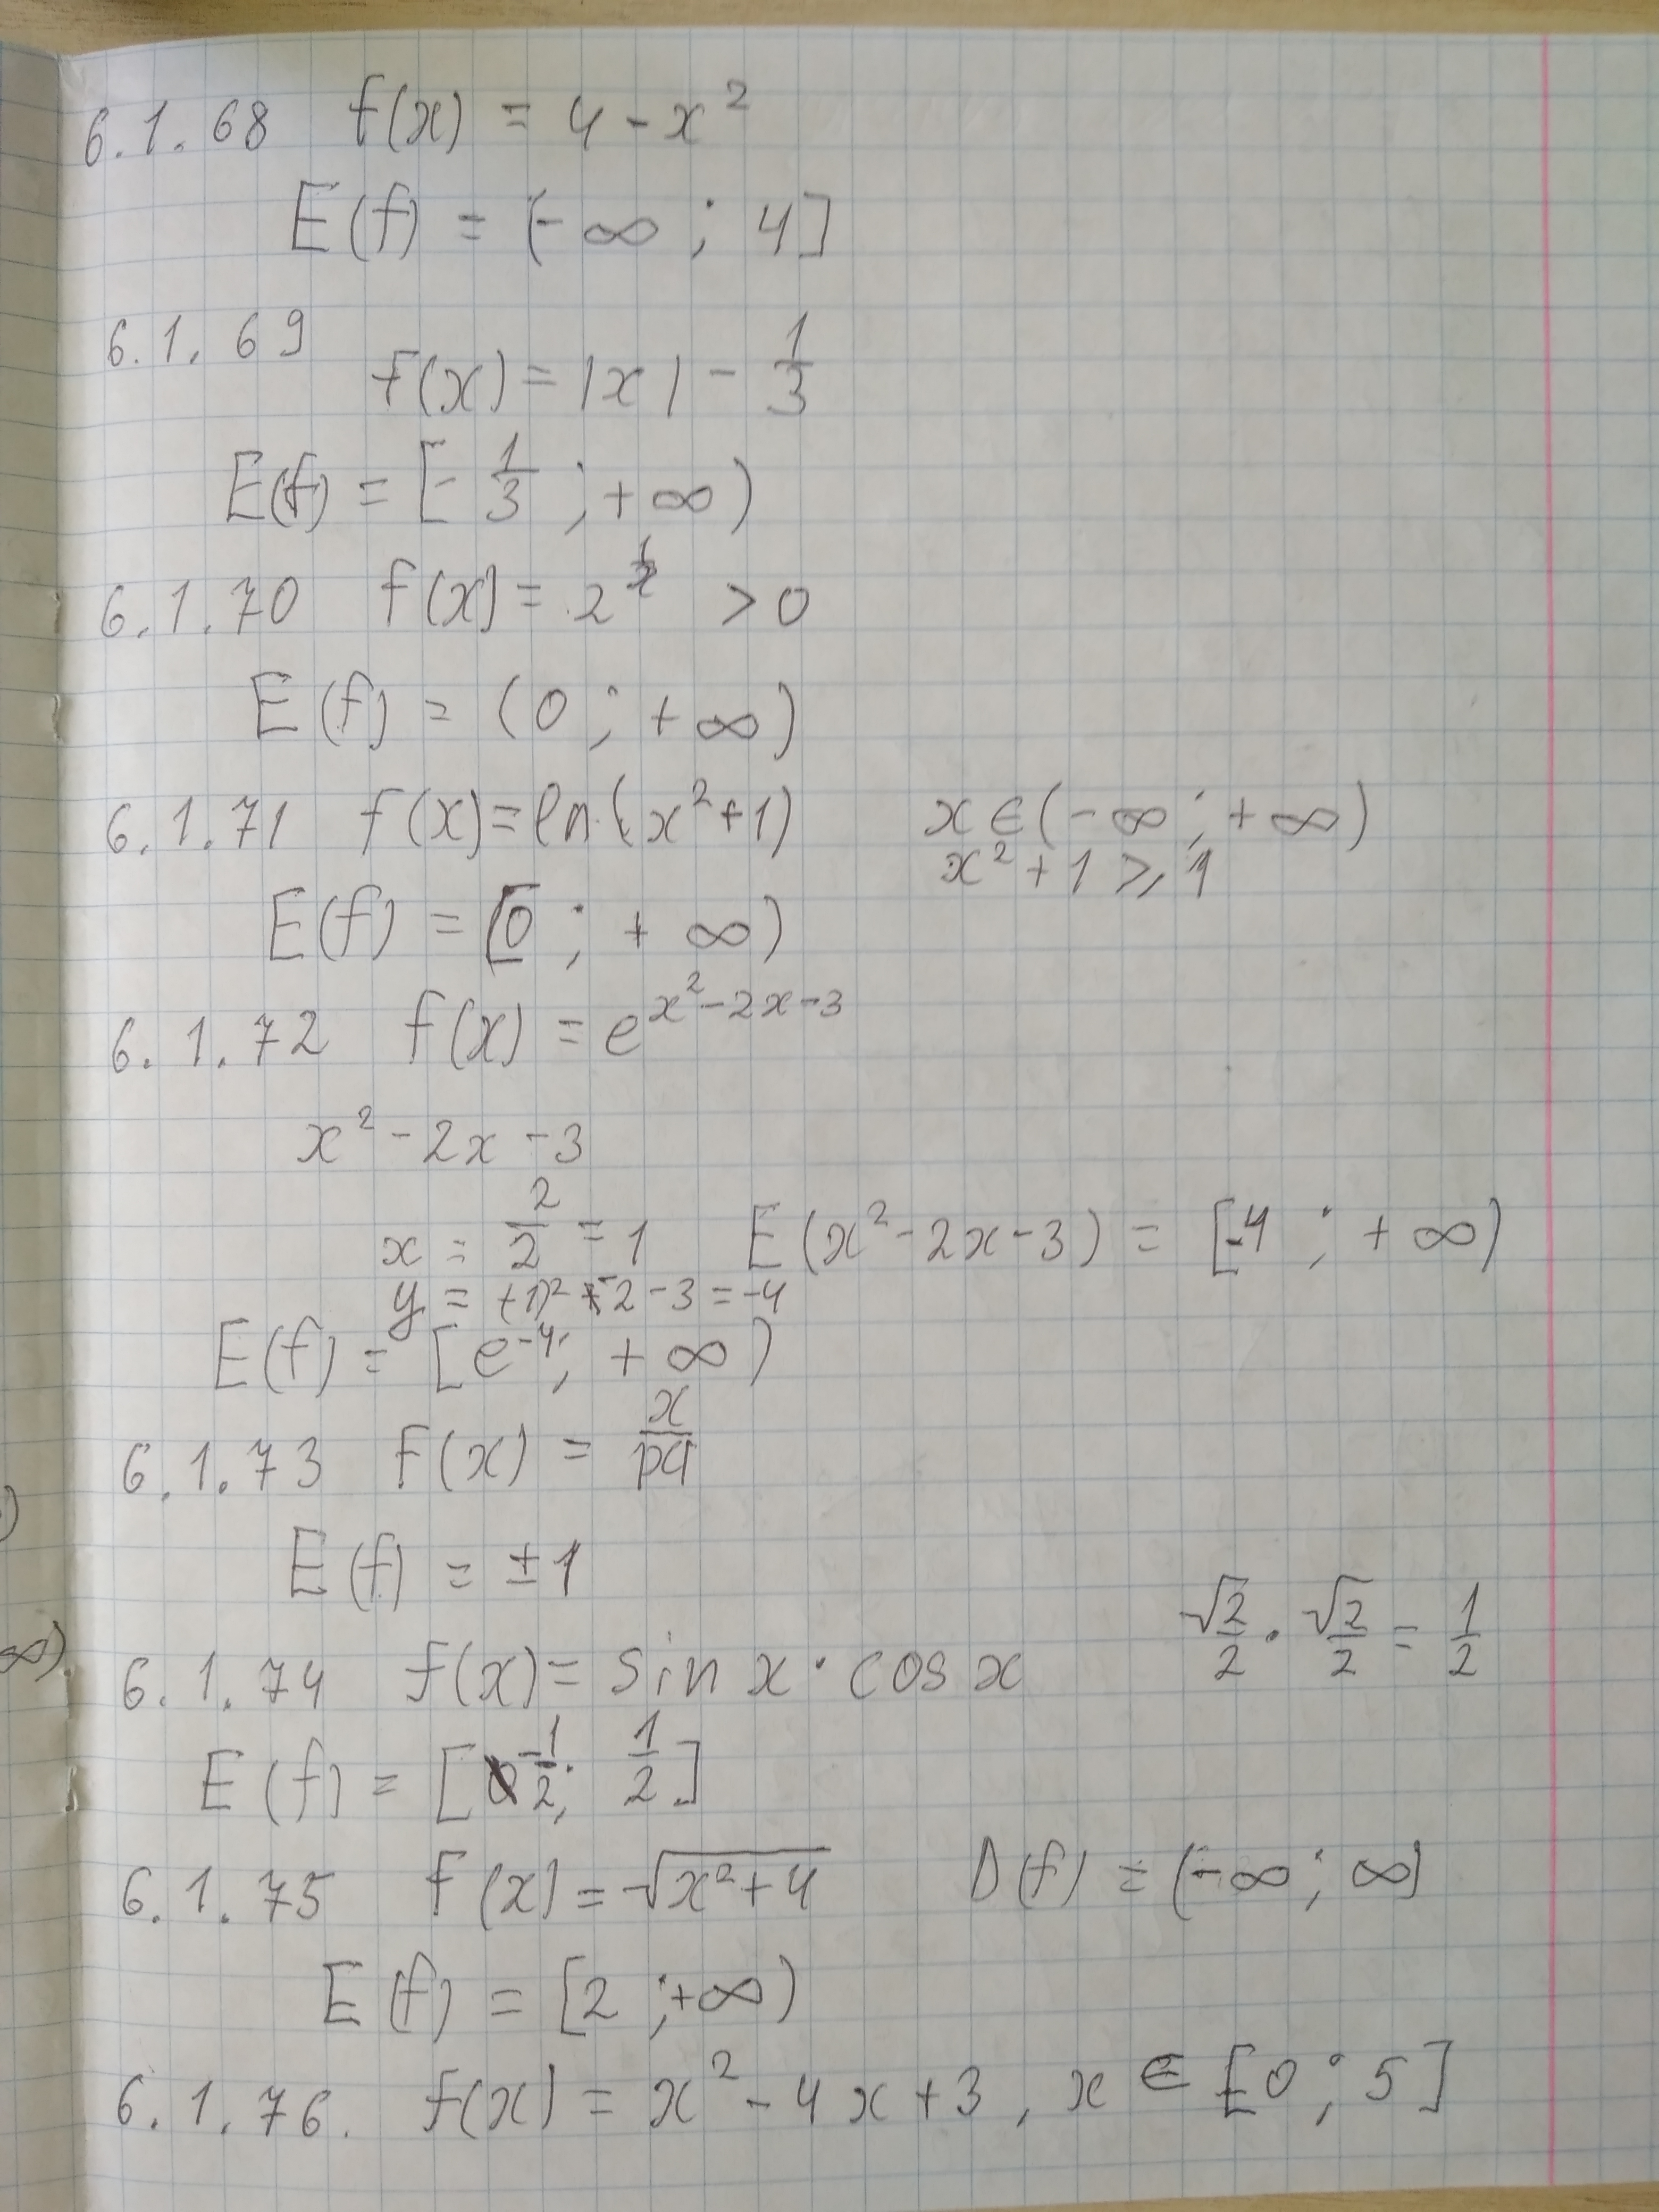 6.1.68 f(x) = 4 - x²
E(f) = (-∞ ; 4]
6.1.69 f(x) = |x| - 1/3
E(f) = [-1/3 ; +∞)
6.1.70 f(x) = 2^(1/x) > 0
E(f) = (0 ; +∞)
6.1.71 f(x) = ln(x²+1) x ∈ (-∞ ; +∞)
x² + 1 ⩾ 1
E(f) = [0 ; +∞)
6.1.72 f(x) = e^(x²-2x-3)
x² - 2x - 3
x = 2/2 = 1 E(x² - 2x - 3) = [-4 ; +∞)
y = (1)² - 2 - 3 = -4
E(f) = [e⁻⁴ ; +∞)
6.1.73 f(x) = x/|x|
E(f) = ±1
√2/2 · √2/2 = 1/2
6.1.74 f(x) = sin x · cos x
E(f) = [-1/2 ; 1/2]
6.1.75 f(x) = √(x²+4) D(f) = (-∞ ; ∞)
E(f) = [2 ; +∞)
6.1.76. f(x) = x² - 4x + 3 , x ∈ [0 ; 5]